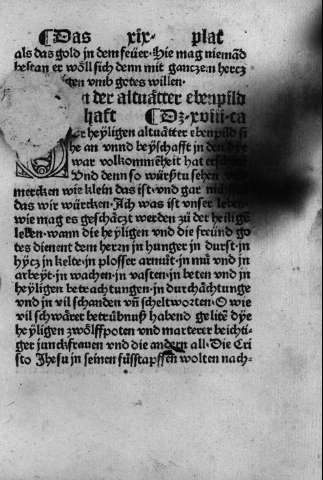 ¶Das xix· plat
als das gold in dem feüer·Hie mag niemãd
bestan er wöll sich denn mit ganczem hercz
gen vmb gotes willen·
n der altuãtter ebenpild
haft ¶Dz·xviii·ca
er heyligen altuãtter ebenpild si
he an vnnd beyschafft in den dye
war volkommẽheit hat
Vnd denn so würstu sehen
mercken wie klein das ist·vnd gar
das wir würcken·Ach was ist vnser leben·
wie mag es geschäczt werden zů der heiligẽ
leben·wann die heyligen vnd die freünd go
tes dienent dem herrn in hunger in durst·in
hycz in kelte·in plosser armůt·in mü vnd in
arbeyt·in wachen·in vasten·in beten vnd in
heyligen betrachtungen·in durchächtunge
vnd in vil schanden vñ scheltworten·O wie
vil schwärer betrübnuß habend gelitẽ dye
heyligen zwölffpoten vnd marterer beichti-
ger junckfrauen vnd die andern all·Die Cri
sto Jhesu in seinen fůsstapffen wolten nach-